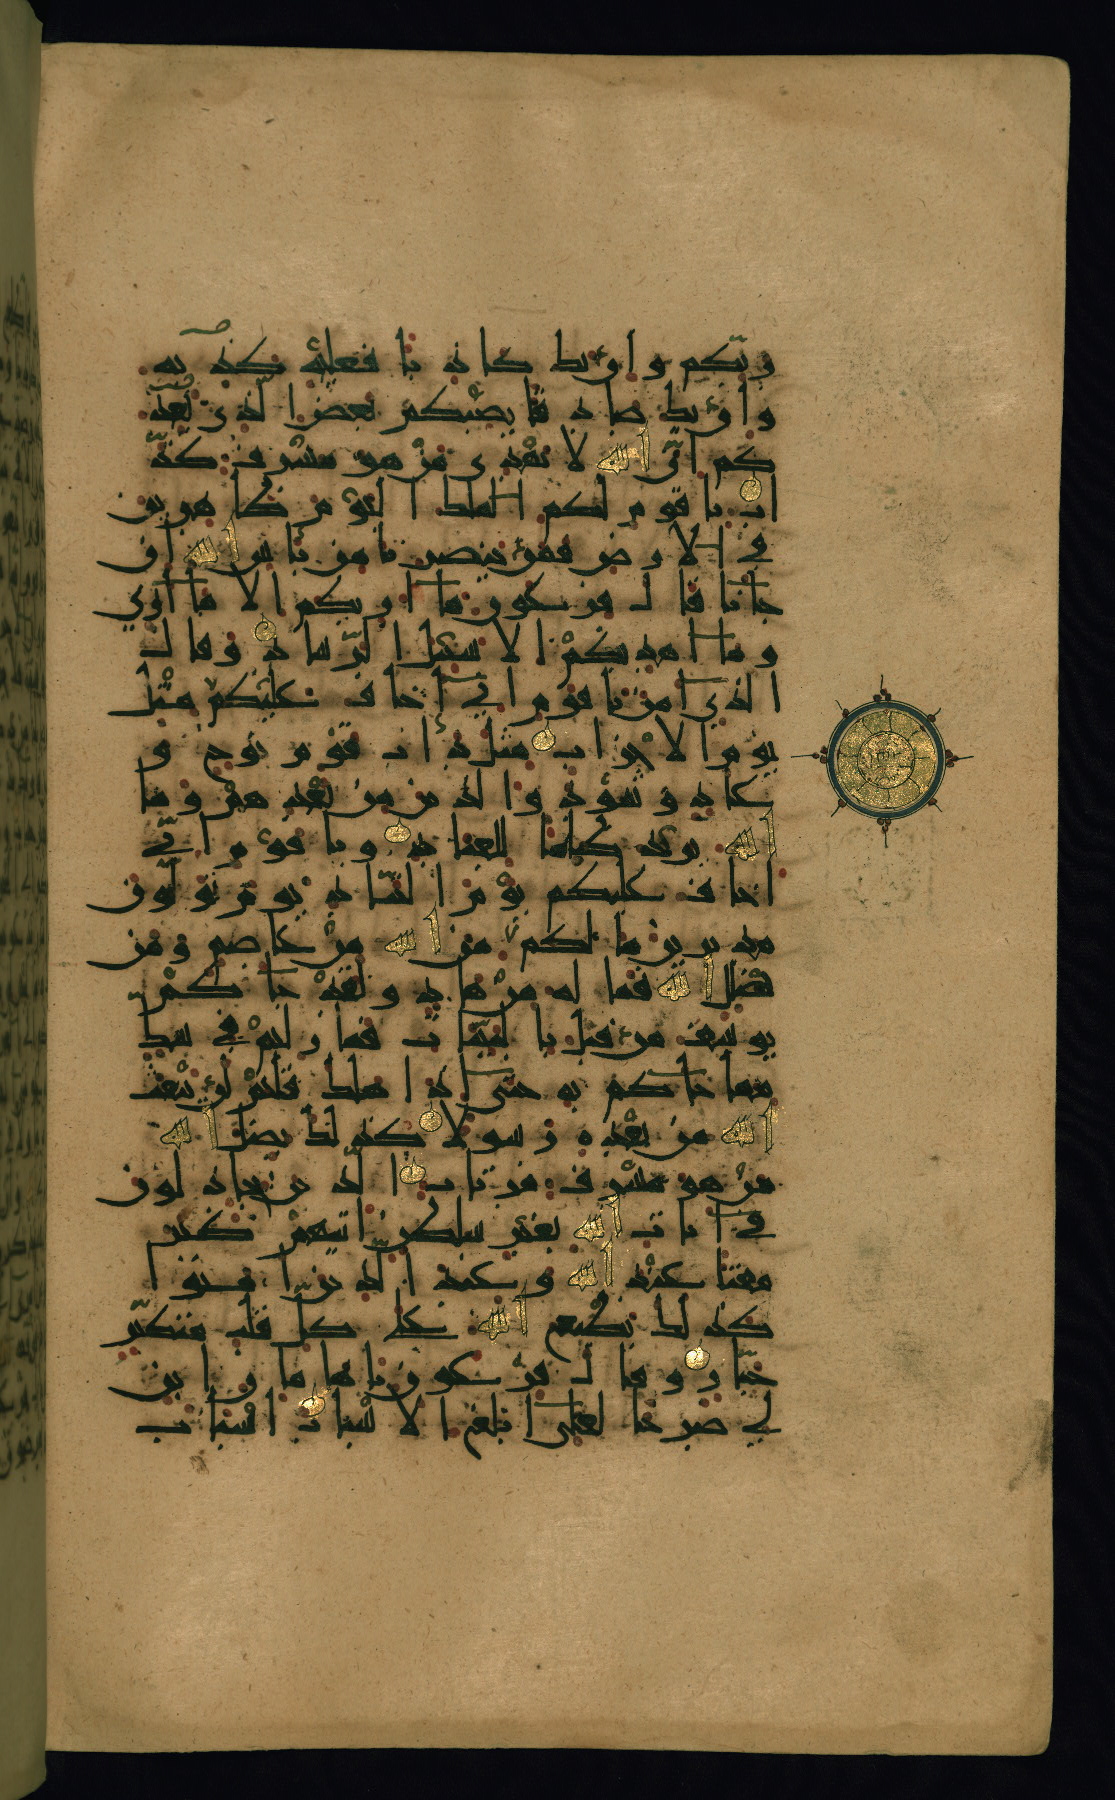 ربكم وان يك كاذبا فعليه كذبه
وان يك صادقا يصبكم بعض الذي يعد
كم ان الله لا يهدي من هو مسرف كذ
اب يا قوم لكم الملك اليوم ظاهرين
في الارض فمن ينصرنا من باس الله ان
جانا قال فرعون ما اريكم الا ما اري
وما اهديكم الا سبيل الرشاد وقال
الذي امن يا قوم اني اخاف عليكم مثل
يوم الاحزاب مثل داب قوم نوح و
عاد وثمود والذين من بعدهم وما
الله يريد ظلما للعباد ويا قوم اني
اخاف عليكم يوم التناد يوم تولون
مدبرين ما لكم من الله من عاصم ومن
يضلل الله فما له من هاد ولقد جاكم
يوسف من قبل بالبينات فما زلتم في شك
مما جاكم به حتى اذا هلك قلتم لن يبعث
الله من بعده رسولا كذلك يضل الله
من هو مسرف مرتاب الذين يجادلون
في ايات الله بغير سلطن اتيهم كبر
مقتا عند الله وعند الذين امنوا
كذلك يطبع الله على كل قلب متكبر
جبار وقال فرعون يا هامان ابن
لي صرحا لعلي ابلغ الاسباب اسباب